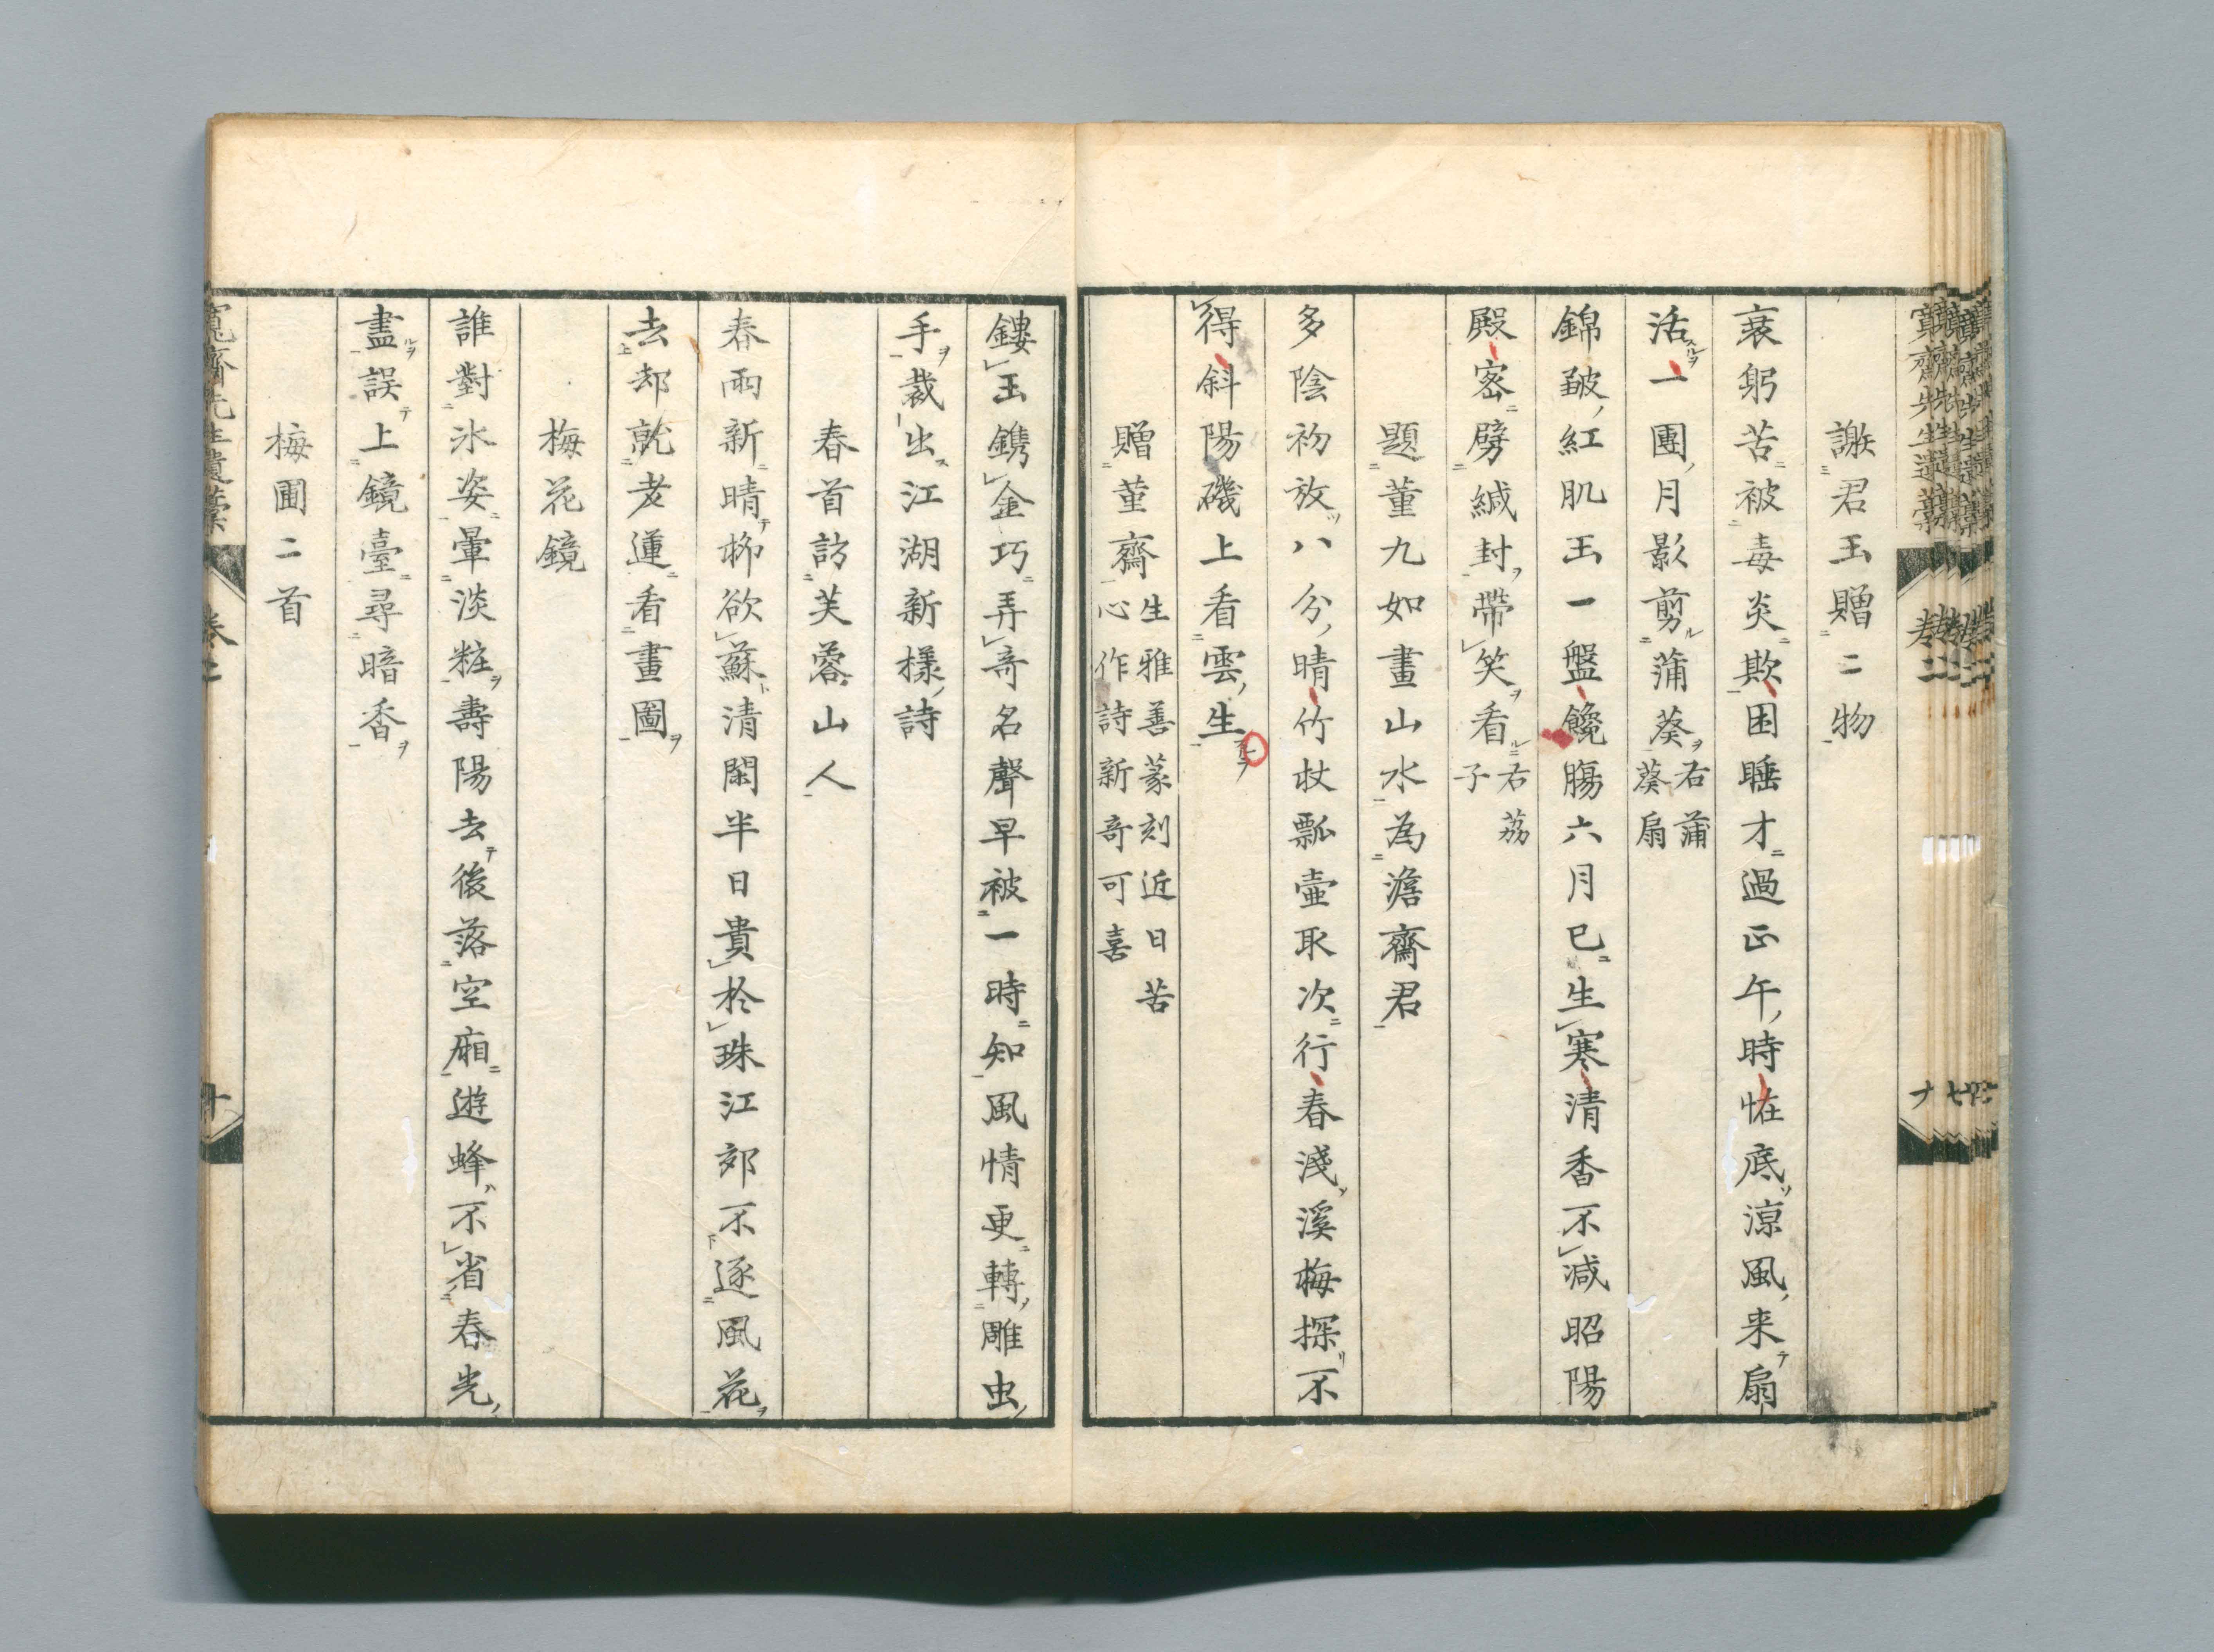 謝君玉贈二物
衰躬苦被毒炎欺困睡才過正午時怪底凉風来扇
活一團月影剪蒲葵右蒲葵扇
錦皷紅肌玉一盤饞腸六月已生寒清香不減昭陽
殿密劈緘封帶笑看右茘子
題董九如畫山水為澹齋君
多陰初放八分晴竹杖瓢壷取次行春淺溪梅探不
得斜陽磯上看雲生
贈董齋生雅善篆刻近日苦心作詩詩新奇可喜
鏤玉鐫金巧弄奇名聲早被一時知風情更轉雕虫
手裁出江湖新樣詩
春首訪芙蓉山人
春雨新晴柳欲蘇清閑半日貴於珠江郊不逐風花
去却就老蓮看畫圖
梅花鏡
誰對氷姿暈淡粧壽陽去後落空廂遊蜂不省春光
盡誤上鏡臺尋暗香
梅圃二首
寬齋先生遺藁
卷二
十